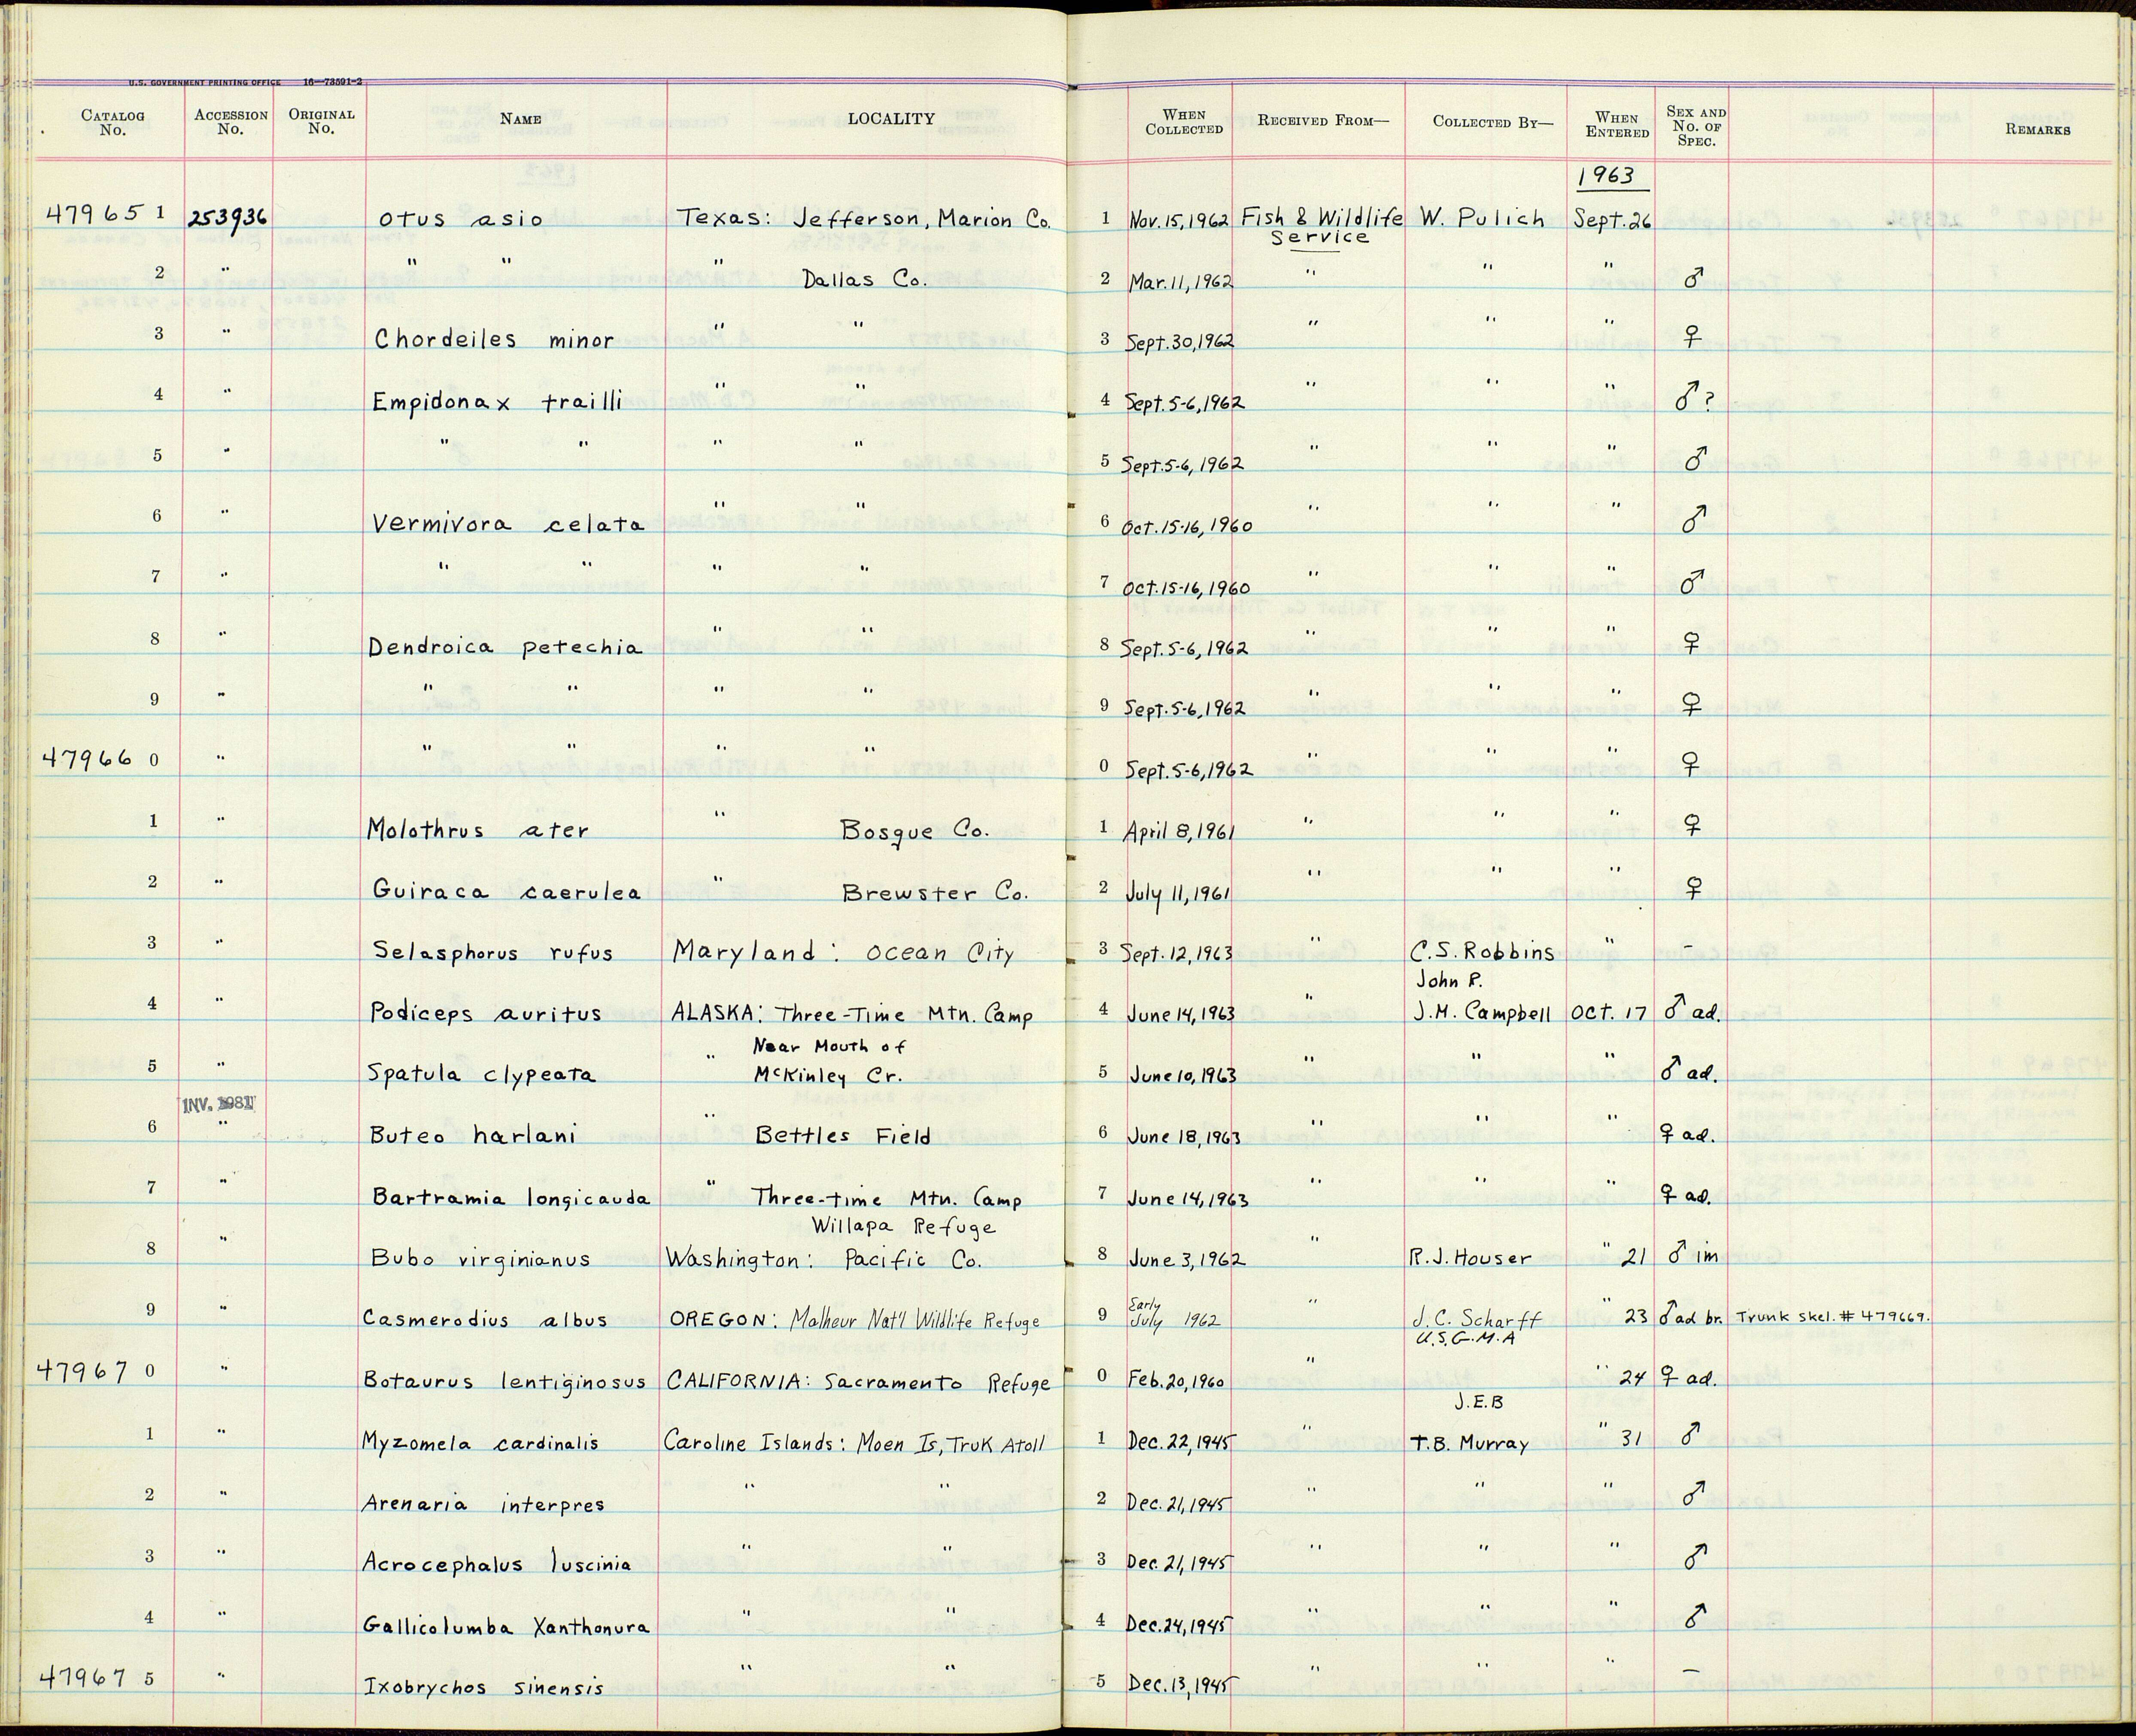 U.S. GOVERNMENT PRINTING OFFICE 16—73591-2
CATALOG No. ACCESSION No. ORIGINAL No. NAME LOCALITY WHEN COLLECTED RECEIVED FROM— COLLECTED BY— WHEN ENTERED SEX AND No. OF SPEC. REMARKS
1963
47965 1 253936 Otus asio Texas: Jefferson, Marion Co. 1 Nov. 15, 1962 Fish & Wildlife Service W. Pulich Sept. 26
2 " " " " Dallas Co. 2 Mar. 11, 1962 " " " ♂
3 " Chordeiles minor " " 3 Sept. 30, 1962 " " " ♀
4 " Empidonax trailli " " 4 Sept. 5-6, 1962 " " " ♂?
5 " " " " " 5 Sept. 5-6, 1962 " " " ♂
6 " Vermivora celata " " 6 Oct. 15-16, 1960 " " " ♂
7 " " " " " 7 Oct. 15-16, 1960 " " " ♂
8 " Dendroica petechia " " 8 Sept. 5-6, 1962 " " " ♀
9 " " " " " 9 Sept. 5-6, 1962 " " " ♀
47966 0 " " " " " 0 Sept. 5-6, 1962 " " " ♀
1 " Molothrus ater " Bosque Co. 1 April 8, 1961 " " " ♀
2 " Guiraca caerulea " Brewster Co. 2 July 11, 1961 " " " ♀
3 " Selasphorus rufus Maryland: Ocean City 3 Sept. 12, 1963 " C.S. Robbins " –
John R.
4 " Podiceps auritus ALASKA: Three-Time Mtn. Camp 4 June 14, 1963 " J.M. Campbell Oct. 17 ♂ ad.
Near Mouth of
5 " Spatula clypeata " McKinley Cr. 5 June 10, 1963 " " " ♂ ad.
INV. 1981
6 " Buteo harlani " Bettles Field 6 June 18, 1963 " " " ♀ ad.
7 " Bartramia longicauda " Three-time Mtn. Camp 7 June 14, 1963 " " " ♀ ad.
Willapa Refuge
8 " Bubo virginianus Washington: Pacific Co. 8 June 3, 1962 " R.J. Houser " 21 ♂ im
9 " Casmerodius albus OREGON: Malheur Nat'l Wildlife Refuge 9 Early July 1962 " J.C. Scharff " 23 ♂ ad br. Trunk skel. # 479669.
U.S.G.M.A
47967 0 " Botaurus lentiginosus CALIFORNIA: Sacramento Refuge 0 Feb. 20, 1960 " " 24 ♀ ad.
J.E.B
1 " Myzomela cardinalis Caroline Islands: Moen Is, Truk Atoll 1 Dec. 22, 1945 " T.B. Murray " 31 ♂
2 " Arenaria interpres " " 2 Dec. 21, 1945 " " " ♂
3 " Acrocephalus luscinia " " 3 Dec. 21, 1945 " " " ♂
4 " Gallicolumba Xanthonura " " 4 Dec. 24, 1945 " " " ♂
47967 5 " Ixobrychos sinensis " " 5 Dec. 13, 1945 " " " –